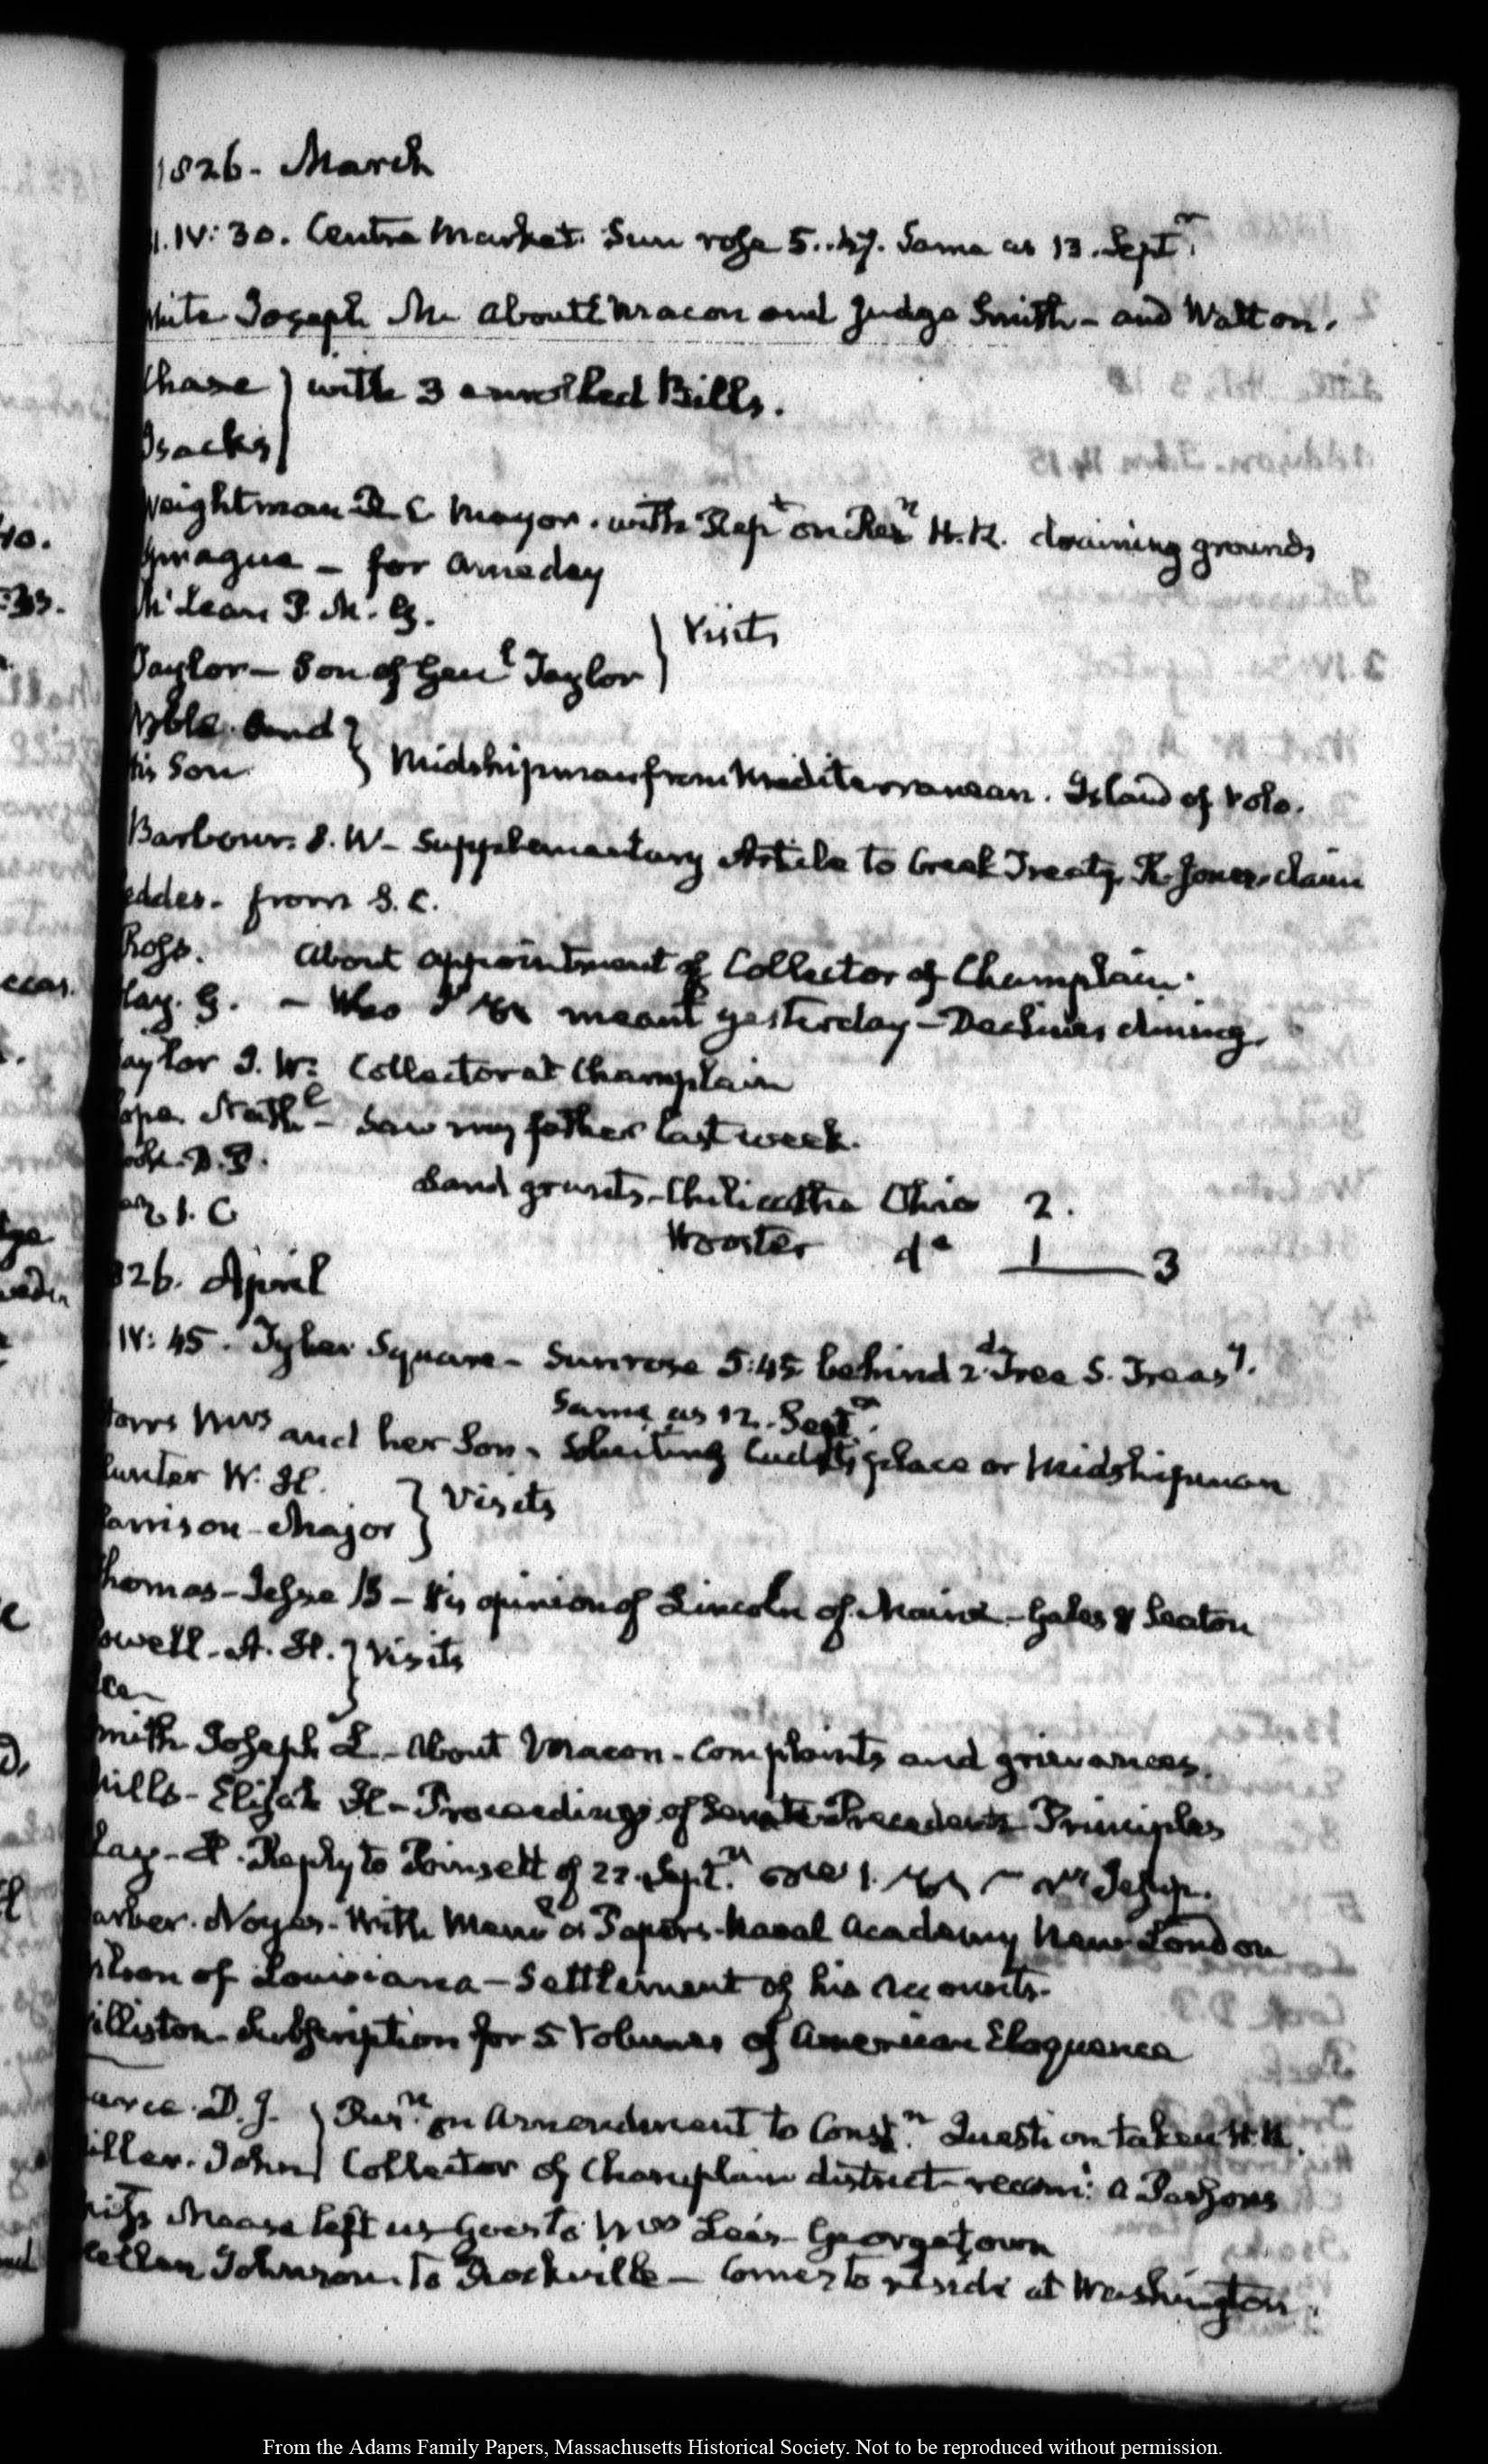 1826. March
IV: 30. Centre Market. Sun rose 5..47. Same as 13. Septr.
White Joseph M. about Macon and Judge Smith - and Walton.
Chase } with 3 enrolled Bills.
Isacks
Weightman R. C. Mayor. with Rept on Resn H.R. draining grounds
Sprague - for
McLean P. M. G. } Visits
Taylor - Son of Genl Taylor
Noble and }
his Son Midshipman from Mediterranean. Island of
Barbour. S. W - Supplementary Article to Creek Treaty. R. Jones claim
Geddes. from S. C.
Ross. About appointment of Collector of Champlain.
Hay. G. - Who meant yesterday - Declines dining.
Taylor J. W. Collector at Champlain
Pope Nathl - Saw my father last week.
Cook. D. P.
I. C Land grants - Chilicothe Ohio 2.
Wooster do 1 3
1826. April
IV: 45. Tyber Square - Sun rose 5:45 behind 2d Tree S. Treasy.
Same as 12. Septr.
Mrs and her Son. Soliciting Cadet's place or Midshipman
Hunter W. H. } Visits
Harrison - Major
Thomas - Jesse B - his opinion of Lincoln of Maine - Gales & Seaton
Powell - A. H. } Visits
Smith Joseph L - About Macon - Complaints and grievances.
Mills - Elijah H - Proceedings of Senate Precedents Principles
Clay - H. Reply to Poinsett of 22. Septr. Mr Jesup.
Barber. Noyes - With Papers - Naval Academy New London
of Louisiana - Settlement of his Accounts.
Williston - Subscription for 5 Volumes of American Eloquence
Pearce. D. J. } on Amendment to Constn. Question taken H. R.
Miller. John Collector of Champlain district - recomd. a Parsons
Miss Mease left us goes to Mrs Lear - Georgetown
Hellen Johnson. to Rockville - Comes to reside at Washington.
From the Adams Family Papers, Massachusetts Historical Society. Not to be reproduced without permission.